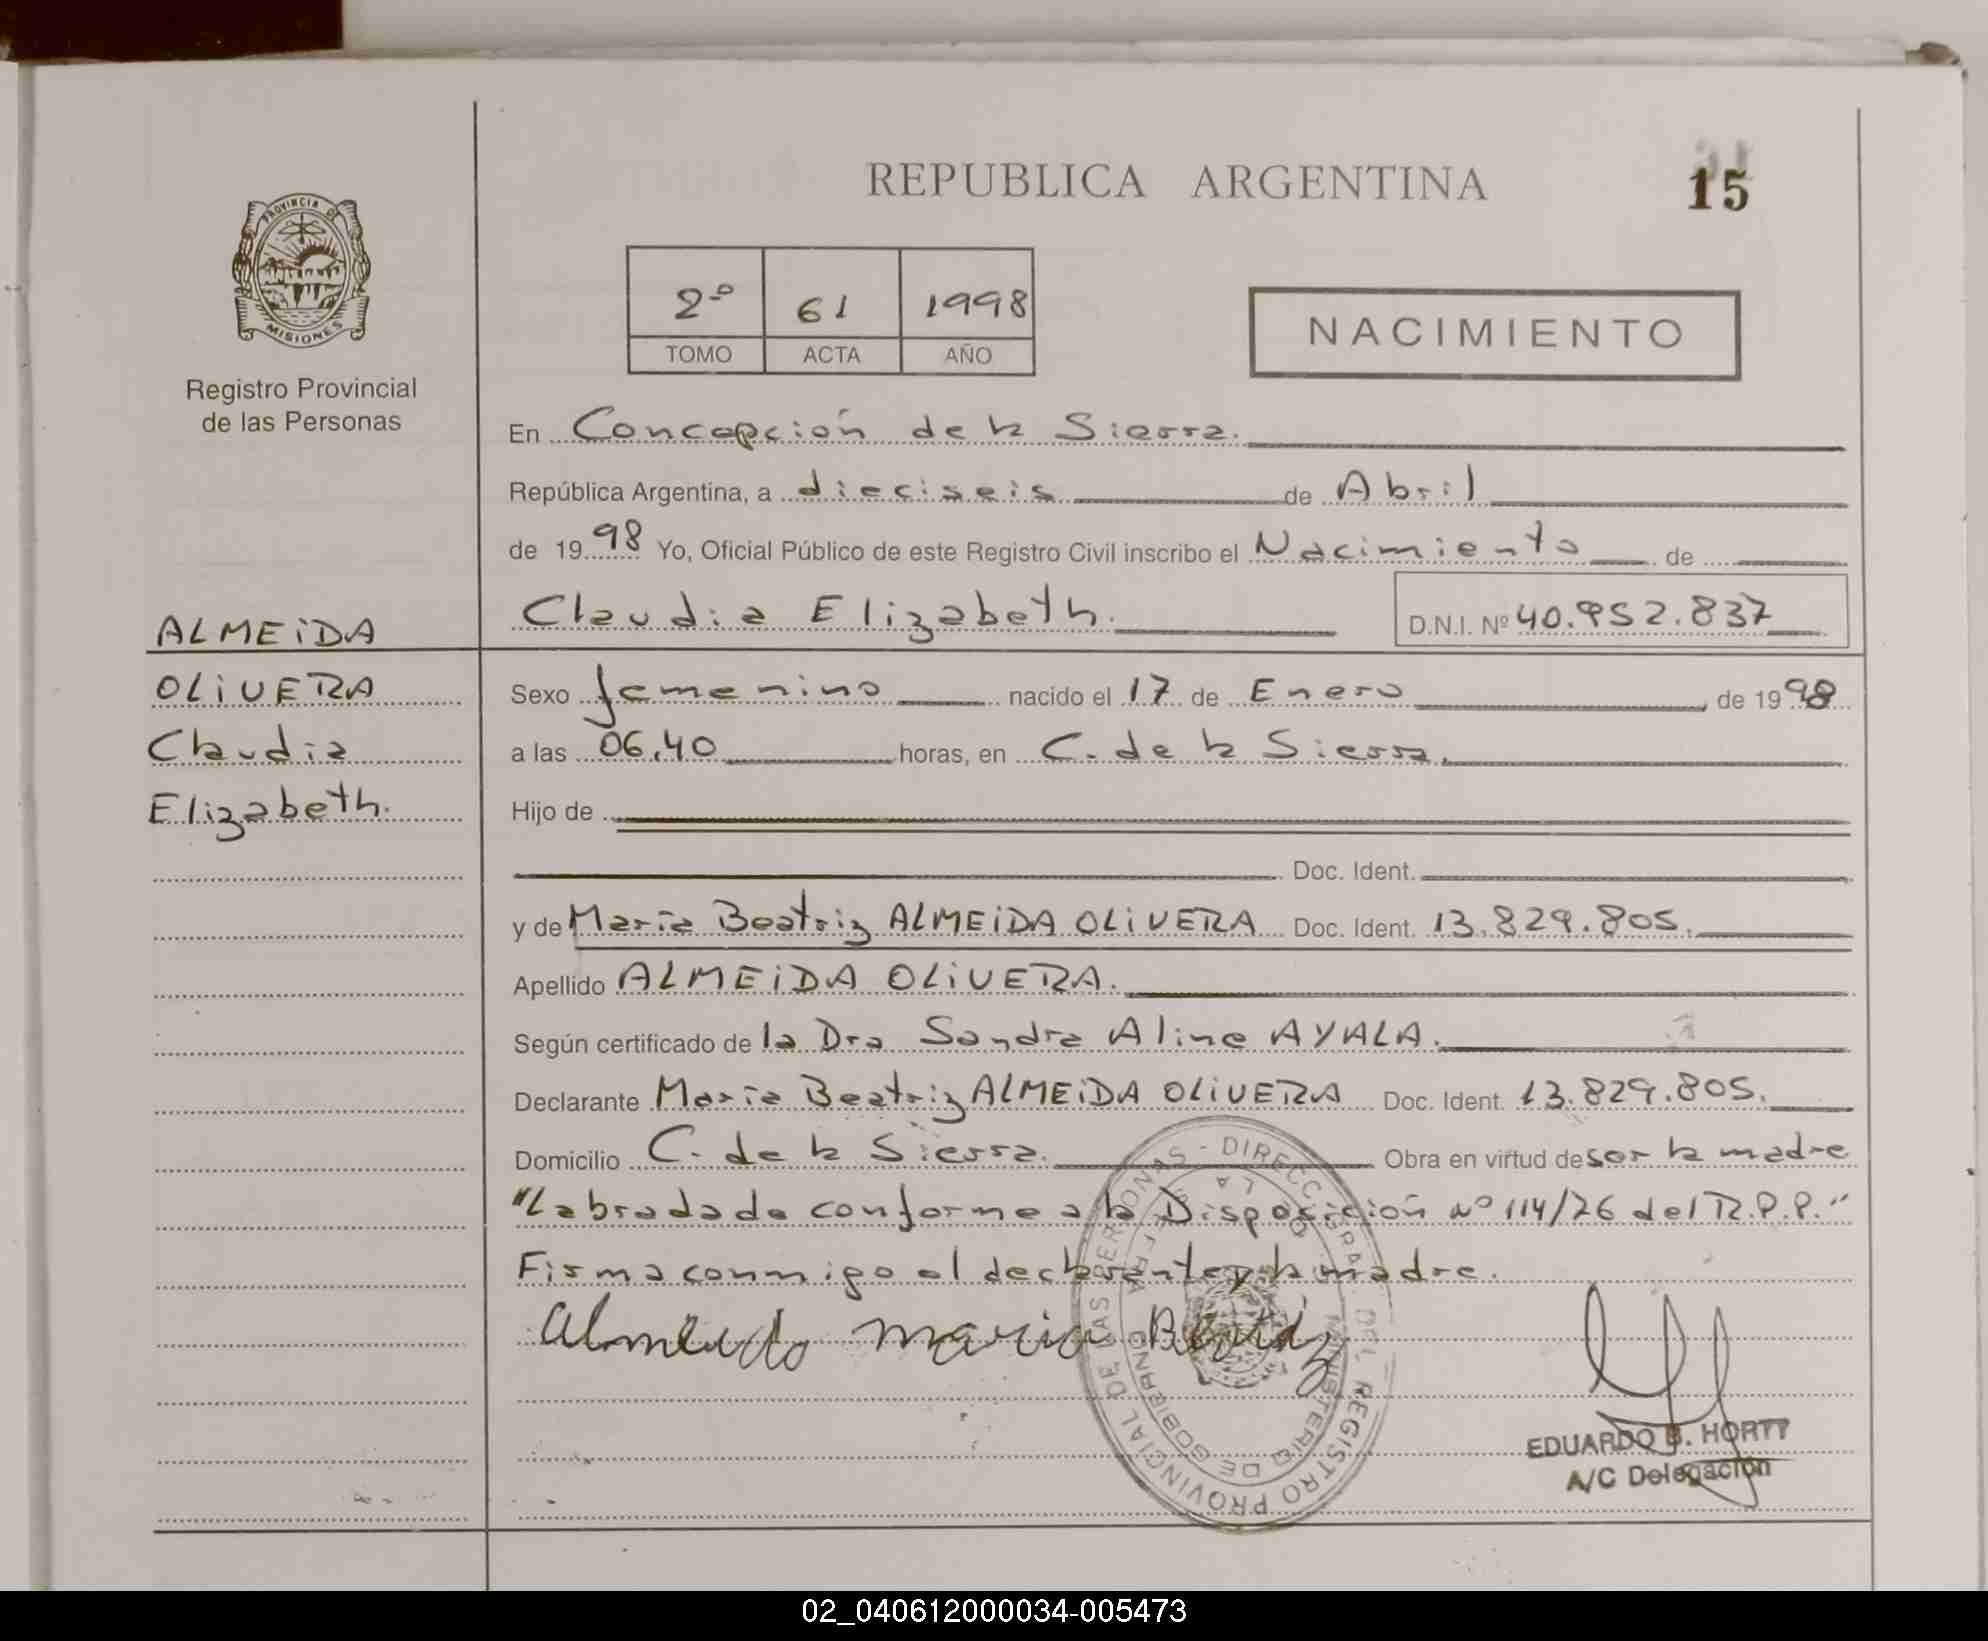 REPUBLICA ARGENTINA
15
PROVINCIA DE
MISIONES
Registro Provincial
de las Personas
2º 61 1998
TOMO ACTA AÑO
NACIMIENTO
En Concepción de la Sierra.
República Argentina, a dieciseis de Abril
de 1998 Yo, Oficial Público de este Registro Civil inscribo el Nacimiento de
Claudia Elizabeth.
D.N.I. Nº 40.952.837
ALMEIDA
OLIVERA
Claudia
Elizabeth.
Sexo femenino nacido el 17 de Enero, de 1998
a las 06,40 horas, en C. de la Sierra.
Hijo de
Doc. Ident.
y de Maria Beatriz ALMEIDA OLIVERA Doc. Ident. 13.829.805.
Apellido ALMEIDA OLIVERA.
Según certificado de la Dra Sandra Aline AYALA.
Declarante Maria Beatriz ALMEIDA OLIVERA Doc. Ident. 13.829.805.
Domicilio C. de la Sierra. Obra en virtud de ser la madre
"Labrada de conforme a la Disposición Nº 114/76 del R.P.P."
Firma conmigo el declarante y la madre.
Almeida Maria Beatriz
REGISTRO PROVINCIAL DE LAS PERSONAS - DIRECC. GRAL. DEL
MINISTERIO DE GOBIERNO
EDUARDO B. HORTT
A/C Delegación
02_040612000034-005473